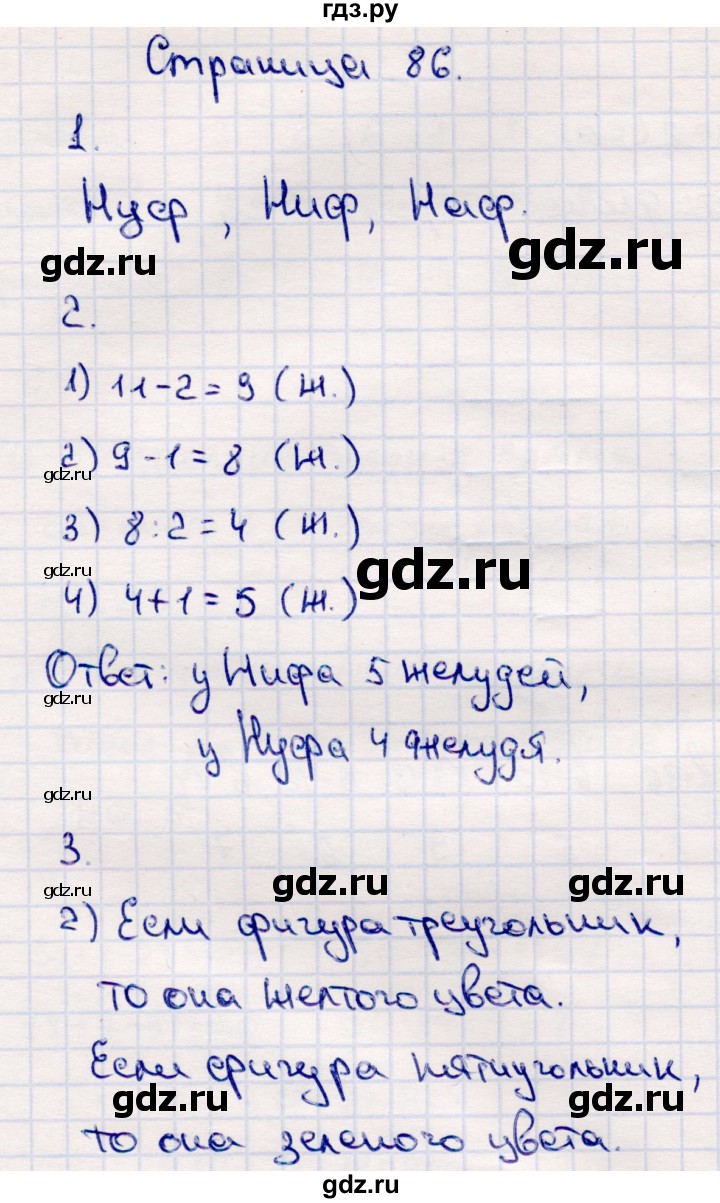 гдз.ру
Страница 86.
1.
Нуф, Ниф, Наф.
gdz.ru
gdz.ru
2.
1) 11-2=9 (ж.)
2) 9-1=8 (ж.)
gdz.ru
3) 8:2=4 (ж.)
gdz.ru
gdz.ru
4) 4+1=5 (ж.)
Ответ: у Нифа 5 желудей,
gdz.ru
у Нуфа 4 желудя.
gdz.ru
3.
gdz.ru
gdz.ru
2) Если фигура треугольник,
то она желтого цвета.
Если фигура пятиугольник,
gdz.ru
gdz.ru
то она зеленого цвета.
gdz.ru